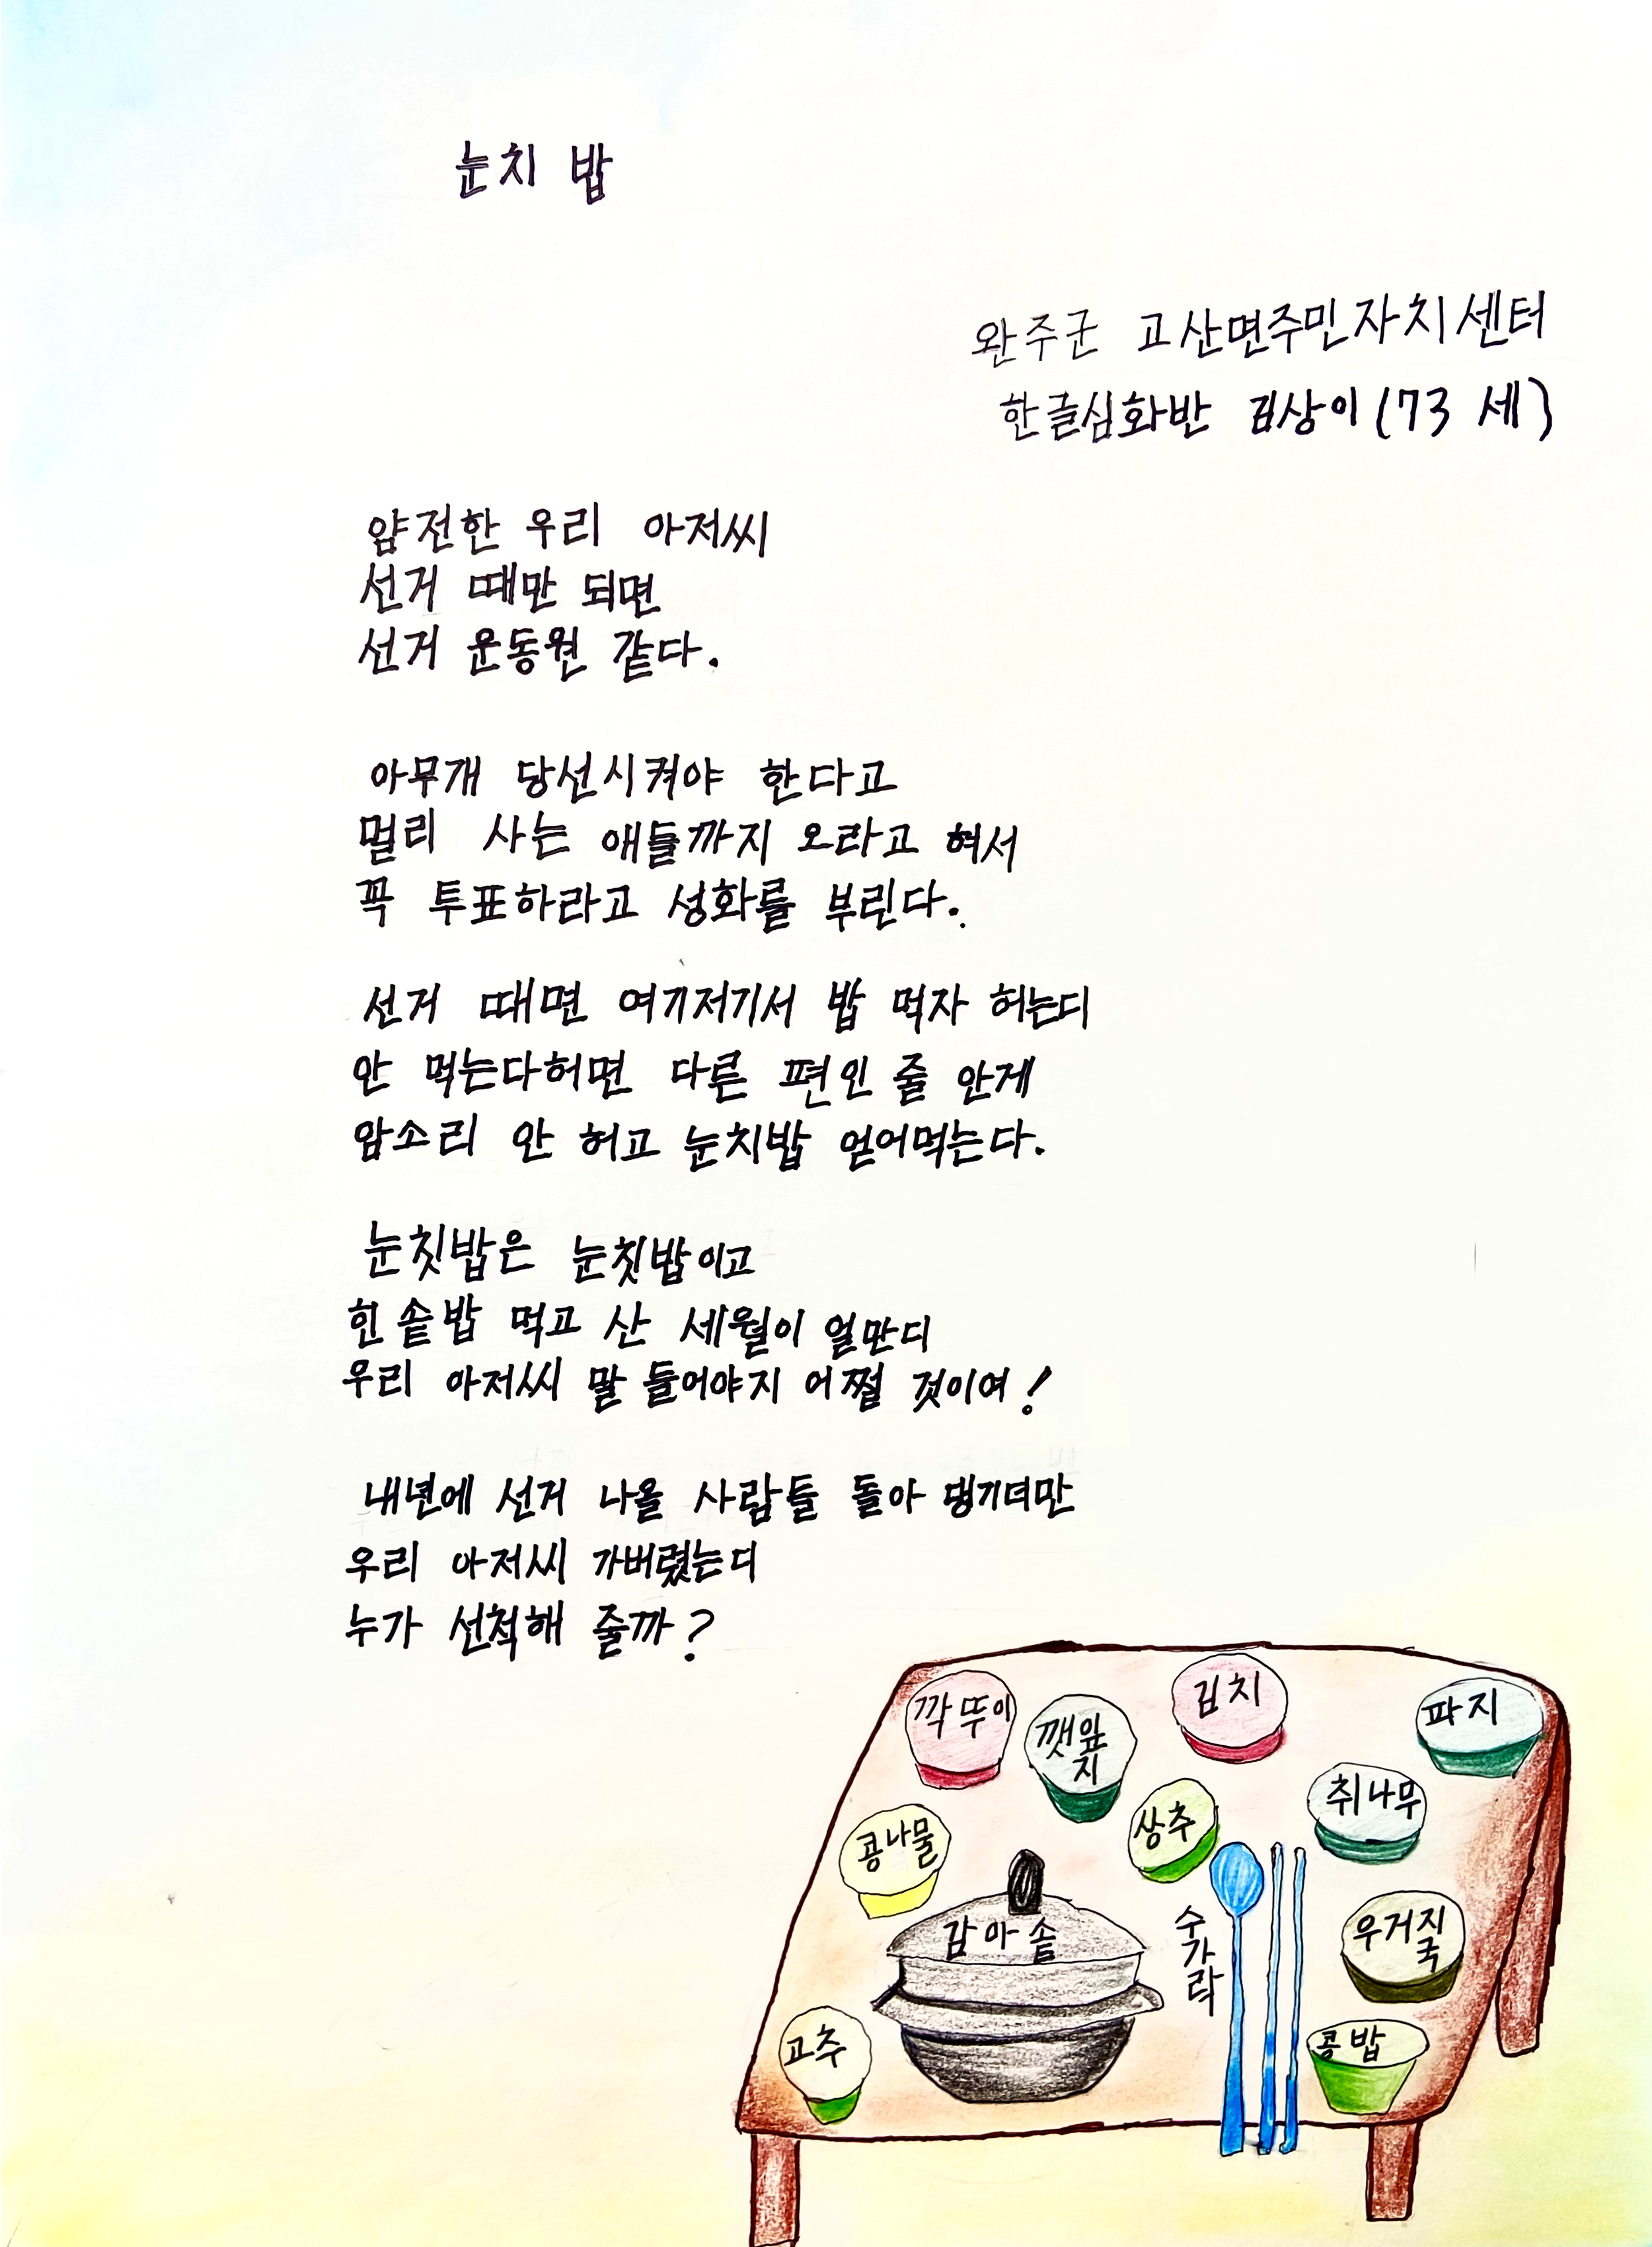 눈치 밥
완주군 고산면주민자치센터
한글심화반 김상이(73 세)
얌전한 우리 아저씨
선거 때만 되면
선거 운동원 같다.
아무개 당선시켜야 한다고
멀리 사는 애들까지 오라고 혀서
꼭 투표하라고 성화를 부린다.
선거 때면 여기저기서 밥 먹자 허는디
안 먹는다허면 다른 편인 줄 안게
암소리 안 허고 눈치밥 얻어먹는다.
눈칫밥은 눈칫밥이고
한솥밥 먹고 산 세월이 얼만디
우리 아저씨 말 들어야지 어쩔 것이여!
내년에 선거 나올 사람들 돌아 댕기더만
우리 아저씨 가버렸는디
누가 선척해 줄까?
깍뚜이
깻잎지
김치
파지
콩나물
상추
취나무
감마솥
수가락
우거지국
고추
콩밥